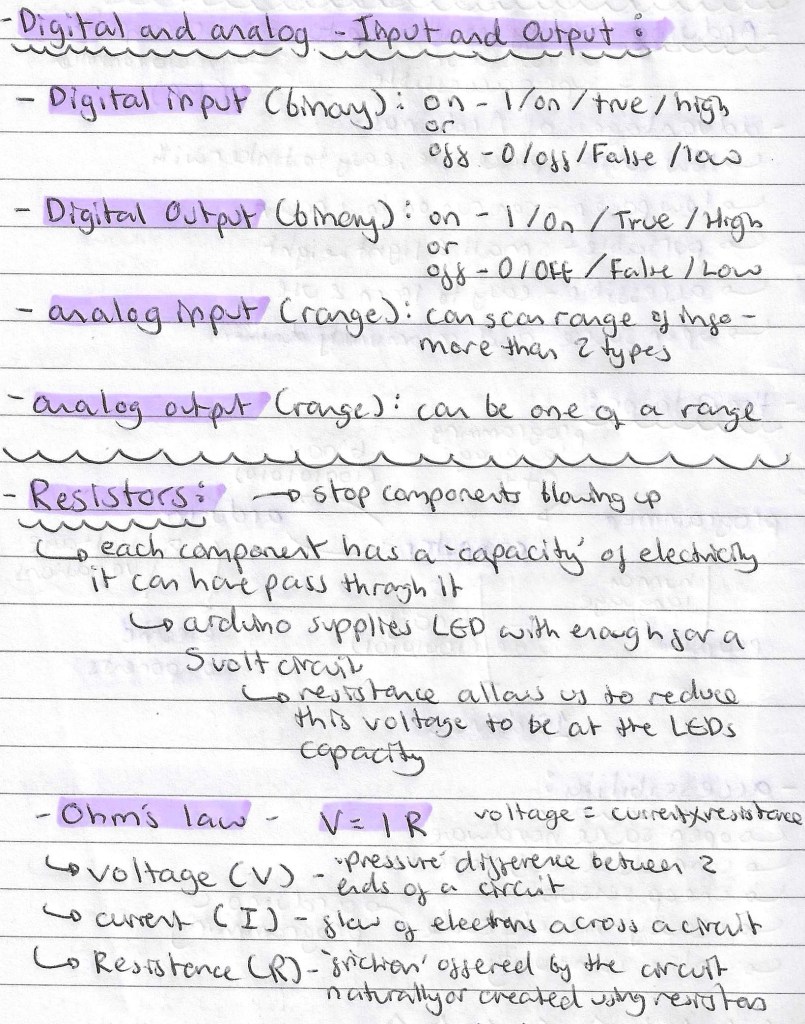 - Digital and analog - Input and Output :
- Digital input (binary): on - 1/on/true/high
or
off - 0/off/False/low
- Digital Output (binary): on - 1/On/True/High
or
off - 0/Off/False/Low
- analog input (range): can scan range of info -
more than 2 types
- analog output (range): can be one of a range
- Resistors: → stop components blowing up
↳ each component has a 'capacity' of electricity
it can have pass through it
↳ arduino supplies LED with enough for a
5 volt circuit
↳ resistance allows us to reduce
this voltage to be at the LEDs
capacity
- Ohm's law - V = I R voltage = current x resistance
↳ voltage (V) - 'pressure' difference between 2
ends of a circuit
↳ current (I) - flow of electrons across a circuit
↳ Resistance (R) - 'friction' offered by the circuit
naturally or created using resistors